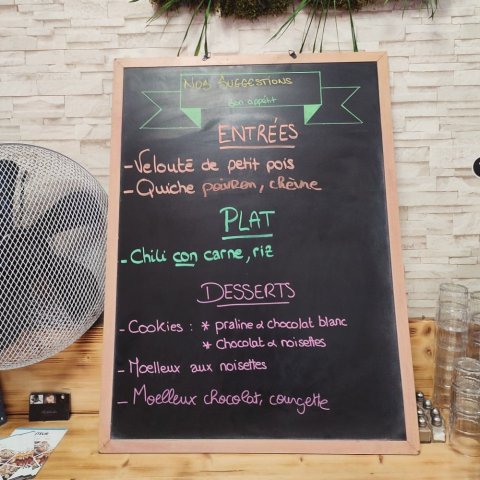 Nos Suggestions
Bon appétit
ENTRÉES
- Velouté de petit pois
- Quiche poivron, chèvre
PLAT
- Chili con carne, riz
DESSERTS
- Cookies : * praline & chocolat blanc
* chocolat & noisettes
- Moelleux aux noisettes
- Moelleux chocolat, courgette